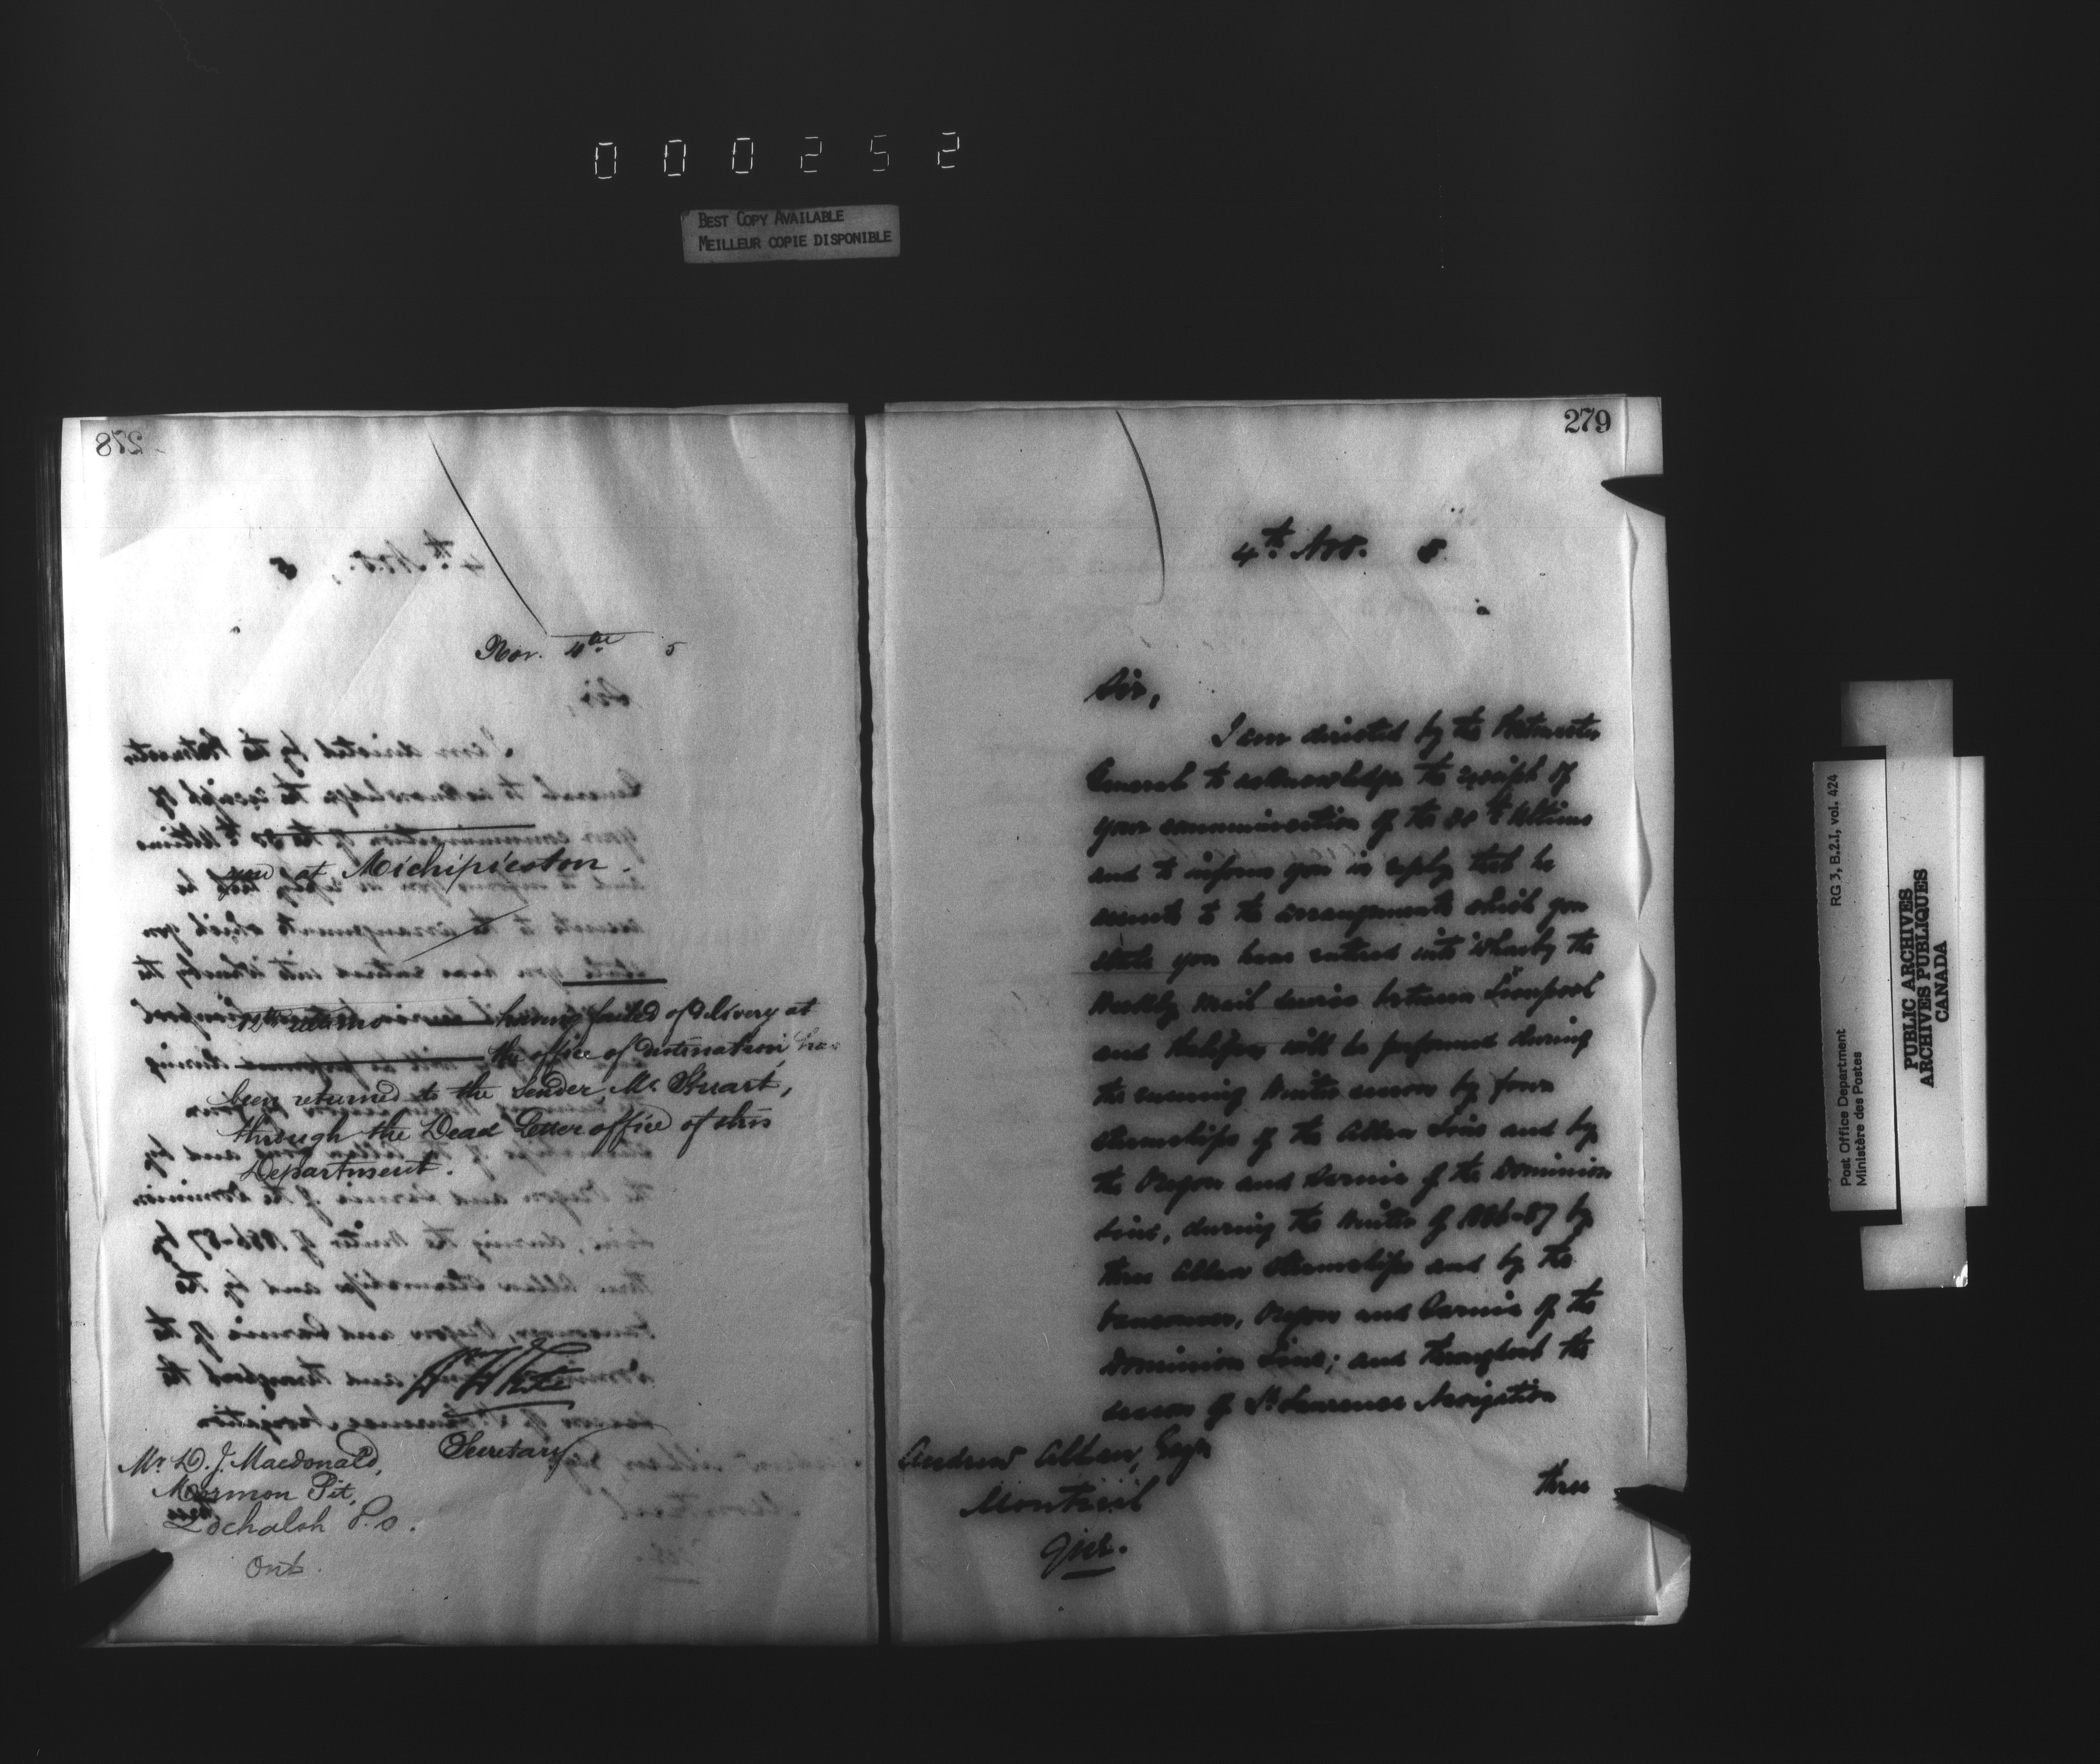 000252
BEST COPY AVAILABLE
MEILLEUR COPIE DISPONIBLE
278
Nov. 4th 5
you at Michipicoton.
12th ultimo having failed of delivery at
the office of destination has
been returned to the sender, Mr. Stuart,
through the Dead Letter office of this
Department.
Secretary
Mr. D. J. Macdonald,
Mormon Pit,
Lochalsh P.O.
Ont.
279
4th Nov. 5
Sir,
I am directed by the Postmaster
General to acknowledge the receipt of
your communication of the 30th Ultimo
and to inform you in reply that he
assents to the arrangements which you
state you have entered into whereby the
Weekly Mail Service between Liverpool
and Halifax will be performed during
the ensuing Winter season by four
steamships of the Allan Line and by
the Oregon and Sarnia of the Dominion
Line, during the Winter of 1886-87 by
three Allan Steamships and by the
Vancouver, Oregon and Sarnia of the
Dominion Line; and throughout the
season of St. Lawrence Navigation
three
Andrew Allan, Esqr.
Montreal
Que.
Post Office Department
Ministère des Postes
RG 3, B.2.I, vol. 424
PUBLIC ARCHIVES
ARCHIVES PUBLIQUES
CANADA